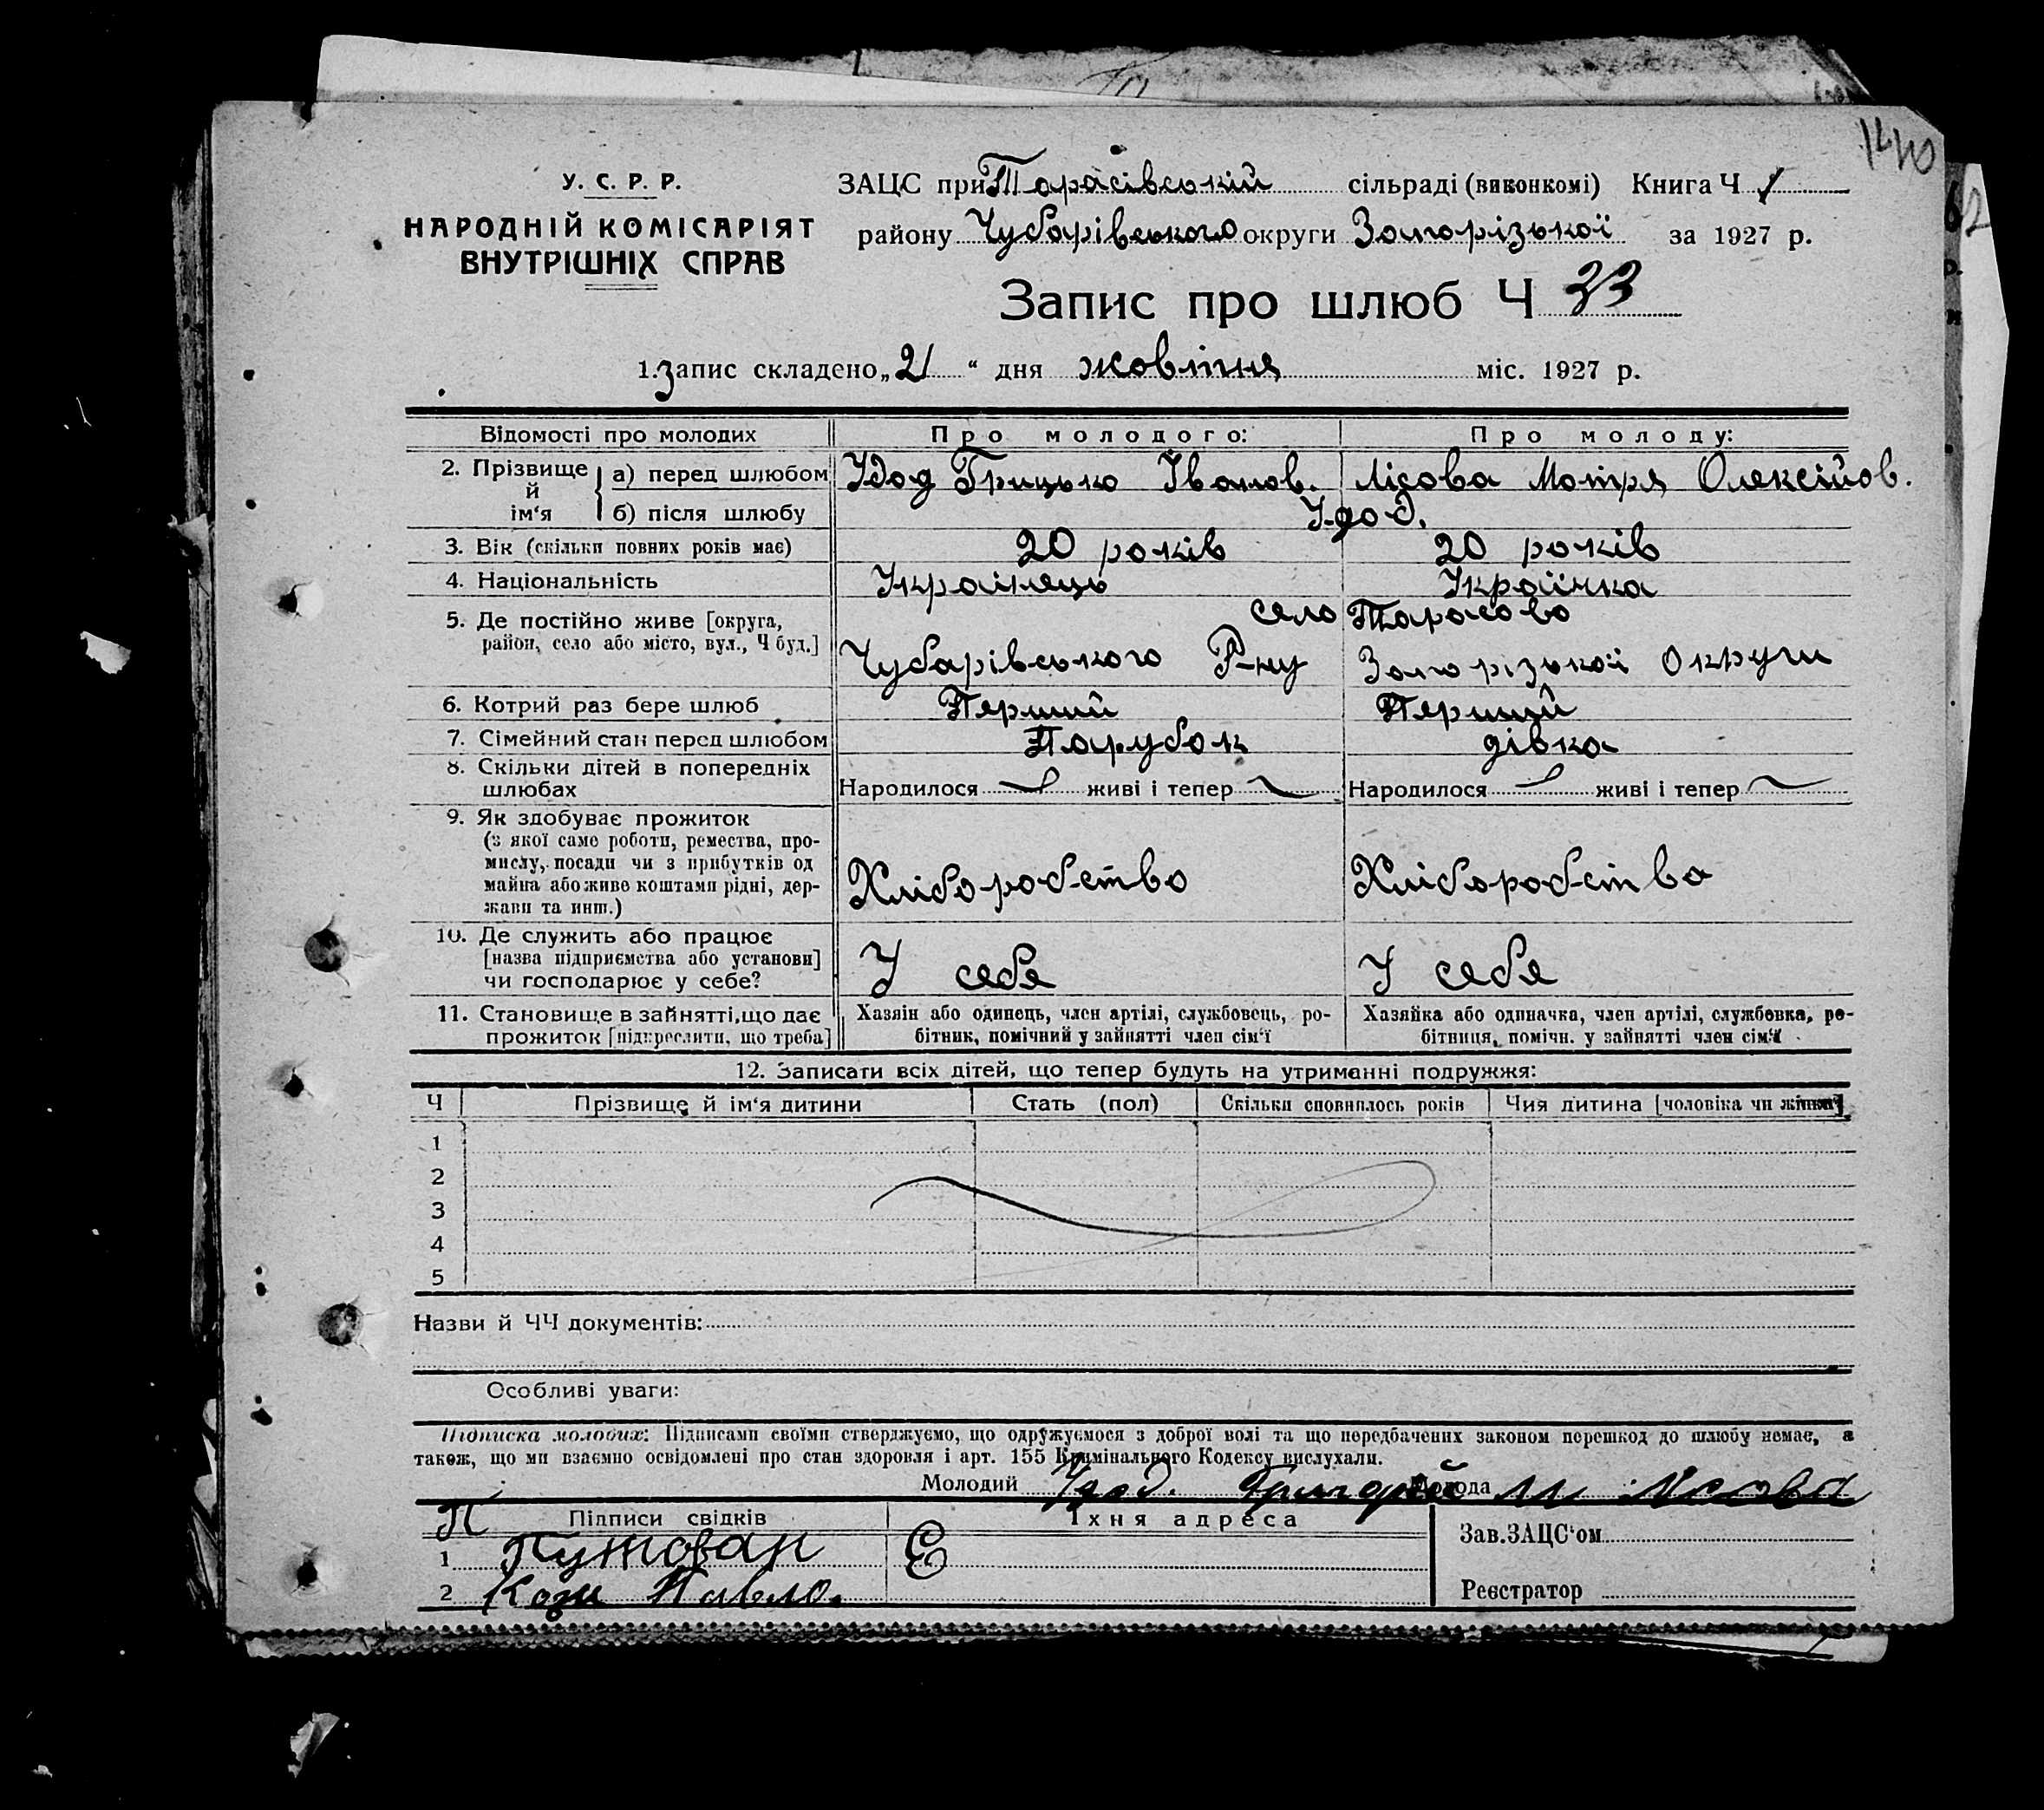 140
У. С. Р. Р.
НАРОДНІЙ КОМІСАРІЯТ
ВНУТРІШНІХ СПРАВ
ЗАЦС при Тарасівській сільраді (виконкомі) Книга Ч 1
району Чубарівського округи Запорізької за 1927 р.
Запис про шлюб Ч 33
1. Запис складено „21“ дня жовтня міс. 1927 р.
Відомості про молодих Про молодого: Про молоду:
2. Прізвище й ім‘я а) перед шлюбом Удод Грицько Іванов. Лісова Мотря Олексійов.
б) після шлюбу Удод.
3. Вік (скільки повних років має) 20 років 20 років
4. Національність Українець Українка
5. Де постійно живе [округа, район, село або місто, вул., Ч буд.] село Тарасово
Чубарівського Р-ну Запорізької Округи
6. Котрий раз бере шлюб Перший Перший
7. Сімейний стан перед шлюбом Парубок дівка
8. Скільки дітей в попередніх шлюбах Народилося живі і тепер Народилося живі і тепер
9. Як здобуває прожиток
(з якої саме роботи, ремества, про-
мислу, посади чи з прибутків од
майна або живе коштами рідні, дер-
жави та инш.) Хліборобство Хліборобство
10. Де служить або працює
[назва підприємства або установи]
чи господарює у себе? У себе У себе
11. Становище в зайнятті, що дає
прожиток [підкреслити, що треба]
Хазяїн або одинець, член артілі, службовець, ро-
бітник, помічний у зайнятті член сім‘ї
Хазяйка або одиначка, член артілі, службовка, ро-
бітниця, помічн. у зайнятті член сім‘ї
12. Записати всіх дітей, що тепер будуть на утриманні подружжя:
Ч Прізвище й ім‘я дитини Стать (пол) Скільки сповнилось років Чия дитина [чоловіка чи жінки]
1
2
3
4
5
Назви й ЧЧ документів:
Особливі уваги:
Підписка молодих: Підписами своїми стверджуємо, що одружуємося з доброї волі та що передбачених законом перешкод до шлюбу немає, а
також, що ми взаємно освідомлені про стан здоровля і арт. 155 Кримінального Кодексу вислухали.
Молодий Удод. Григорій Молода М Лісова
Підписи свідків Їхня адреса Зав. ЗАЦС‘ом
1
2 Павло. Реєстратор